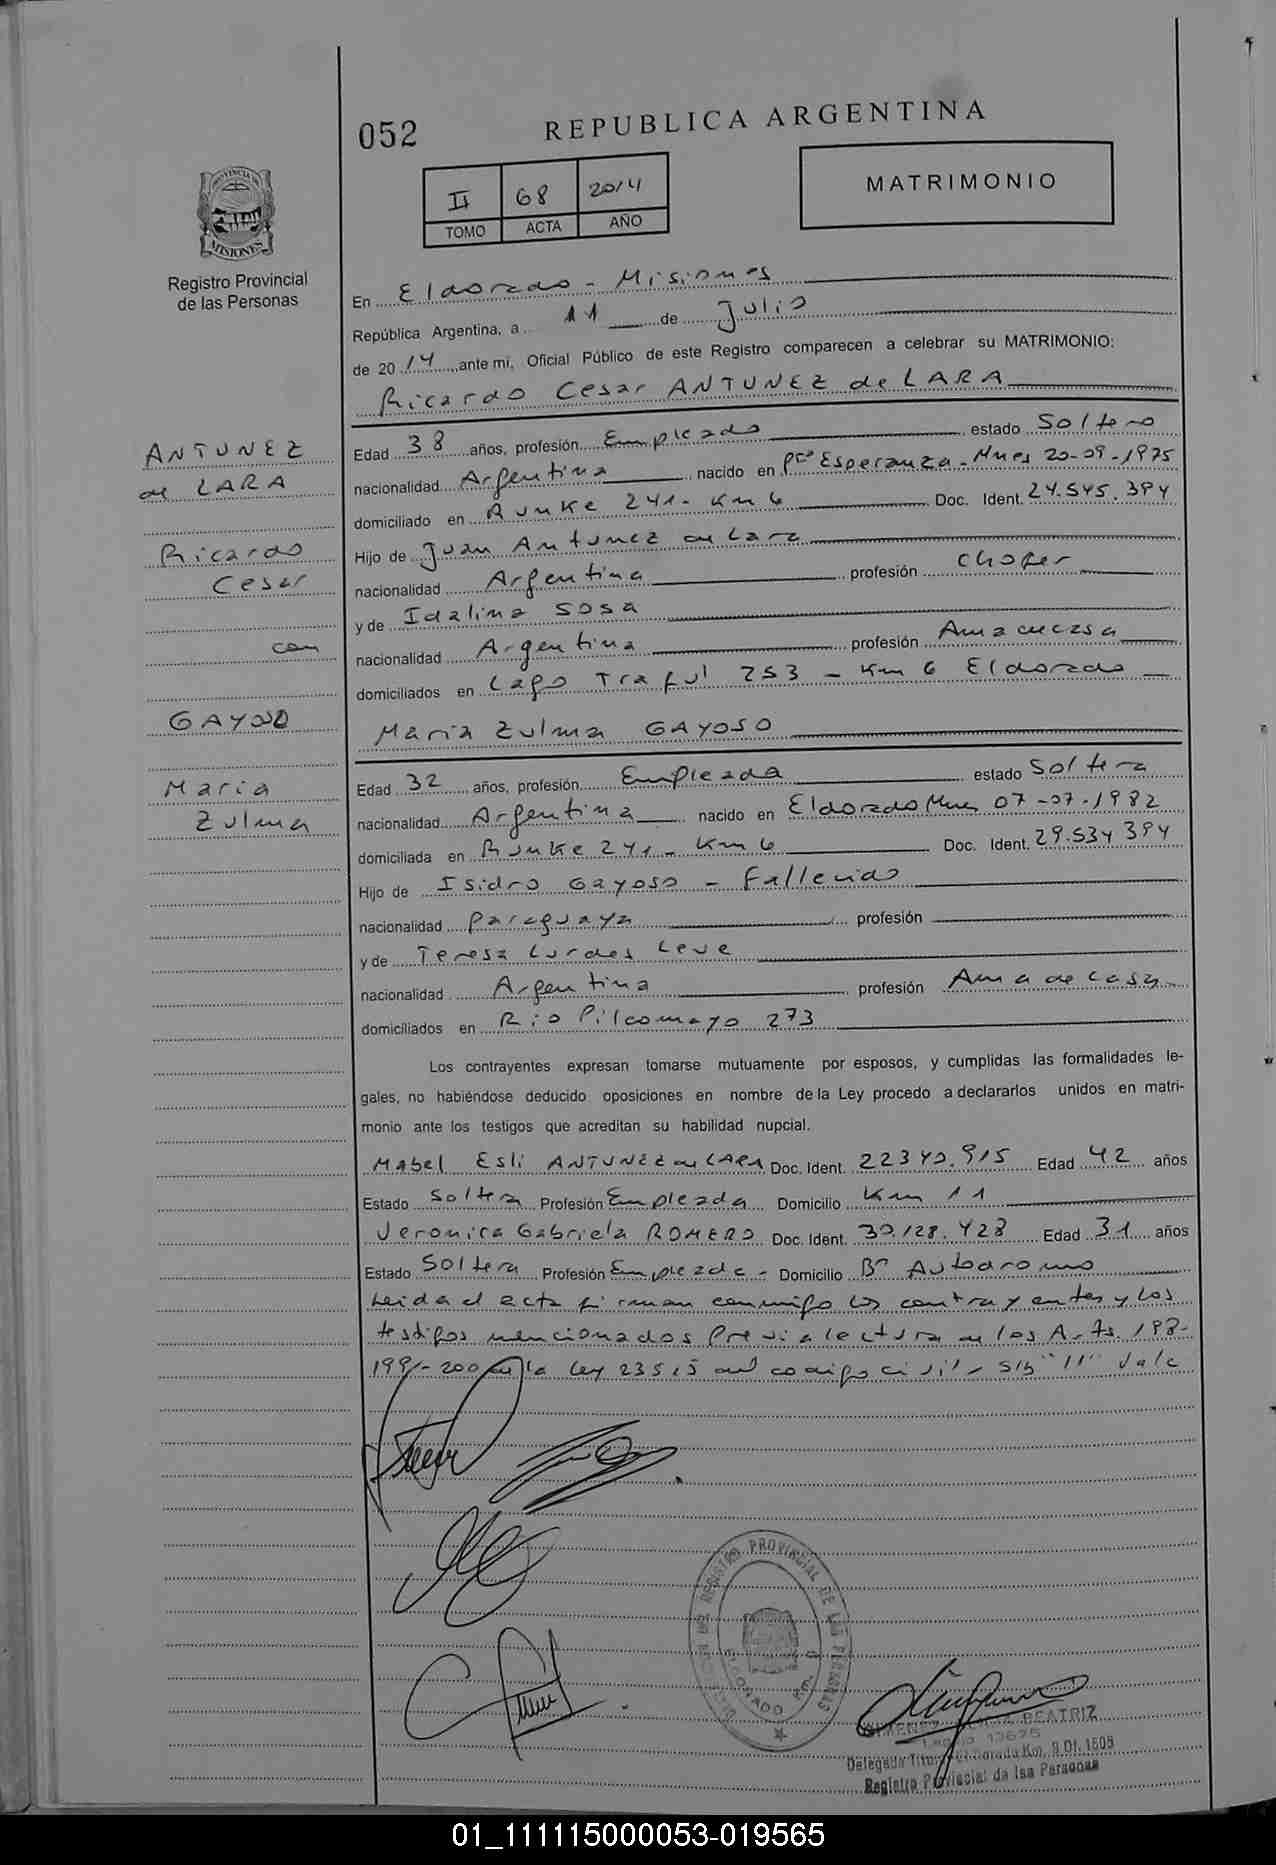 052
REPUBLICA ARGENTINA
PROVINCIA DE
MISIONES
II 68 2014
TOMO ACTA AÑO
MATRIMONIO
Registro Provincial
de las Personas
En Eldorado - Misiones
República Argentina, a 11 de Julio
de 2014 ante mi, Oficial Público de este Registro comparecen a celebrar su MATRIMONIO:
Ricardo Cesar ANTUNEZ de LARA
ANTUNEZ
de LARA
Ricardo
Cesar
con
GAYOSO
Maria
Zulma
Edad 38 años, profesión Empleado estado Soltero
nacionalidad Argentina nacido en Pto Esperanza - Mnes 20-09-1975
domiciliado en Runke 241 - Km 6 Doc. Ident. 24.545.394
Hijo de Juan Antunez de Lara
nacionalidad Argentina profesión Chofer
y de Idalina Sosa
nacionalidad Argentina profesión Ama de casa
domiciliados en Lago Traful 253 - Km 6 Eldorado
Maria Zulma GAYOSO
Edad 32 años, profesión Empleada estado Soltera
nacionalidad Argentina nacido en Eldorado Mnes 07-07-1982
domiciliada en Runke 241 - Km 6 Doc. Ident. 29.534 394
Hijo de Isidro Gayoso - Fallecido
nacionalidad Paraguaya profesión
y de Teresa Lurdes Leve
nacionalidad Argentina profesión Ama de casa
domiciliados en Rio Pilcomayo 273
Los contrayentes expresan tomarse mutuamente por esposos, y cumplidas las formalidades le-
gales, no habiéndose deducido oposiciones en nombre de la Ley procedo a declararlos unidos en matri-
monio ante los testigos que acreditan su habilidad nupcial.
Mabel Esli ANTUNEZ de LARA Doc. Ident. 22340.915 Edad 42 años
Estado Soltera Profesión Empleada Domicilio Km 11
Veronica Gabriela ROMERO Doc. Ident. 30.128.428 Edad 31 años
Estado Soltera Profesión Empleada - Domicilio Bº
Leida el acta firman conmigo los contrayentes y los
testigos mencionados previa lectura de los Arts. 198-
199-200 de la Ley 23515 del codigo civil - S/b "11" Vale
REGISTRO PROVINCIAL DE LAS PERSONAS
ELDORADO Km.
BEATRIZ
Registro Provincial de las Personas
01_111115000053-019565